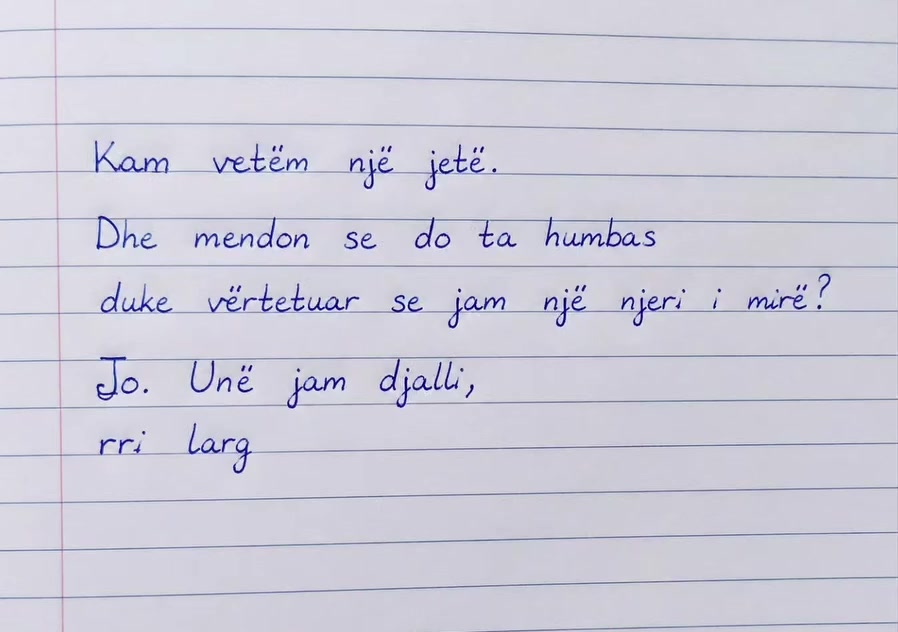 Kam vetëm një jetë.
Dhe mendon se do ta humbas
duke vërtetuar se jam një njeri i mirë?
Jo. Unë jam djalli,
rri larg